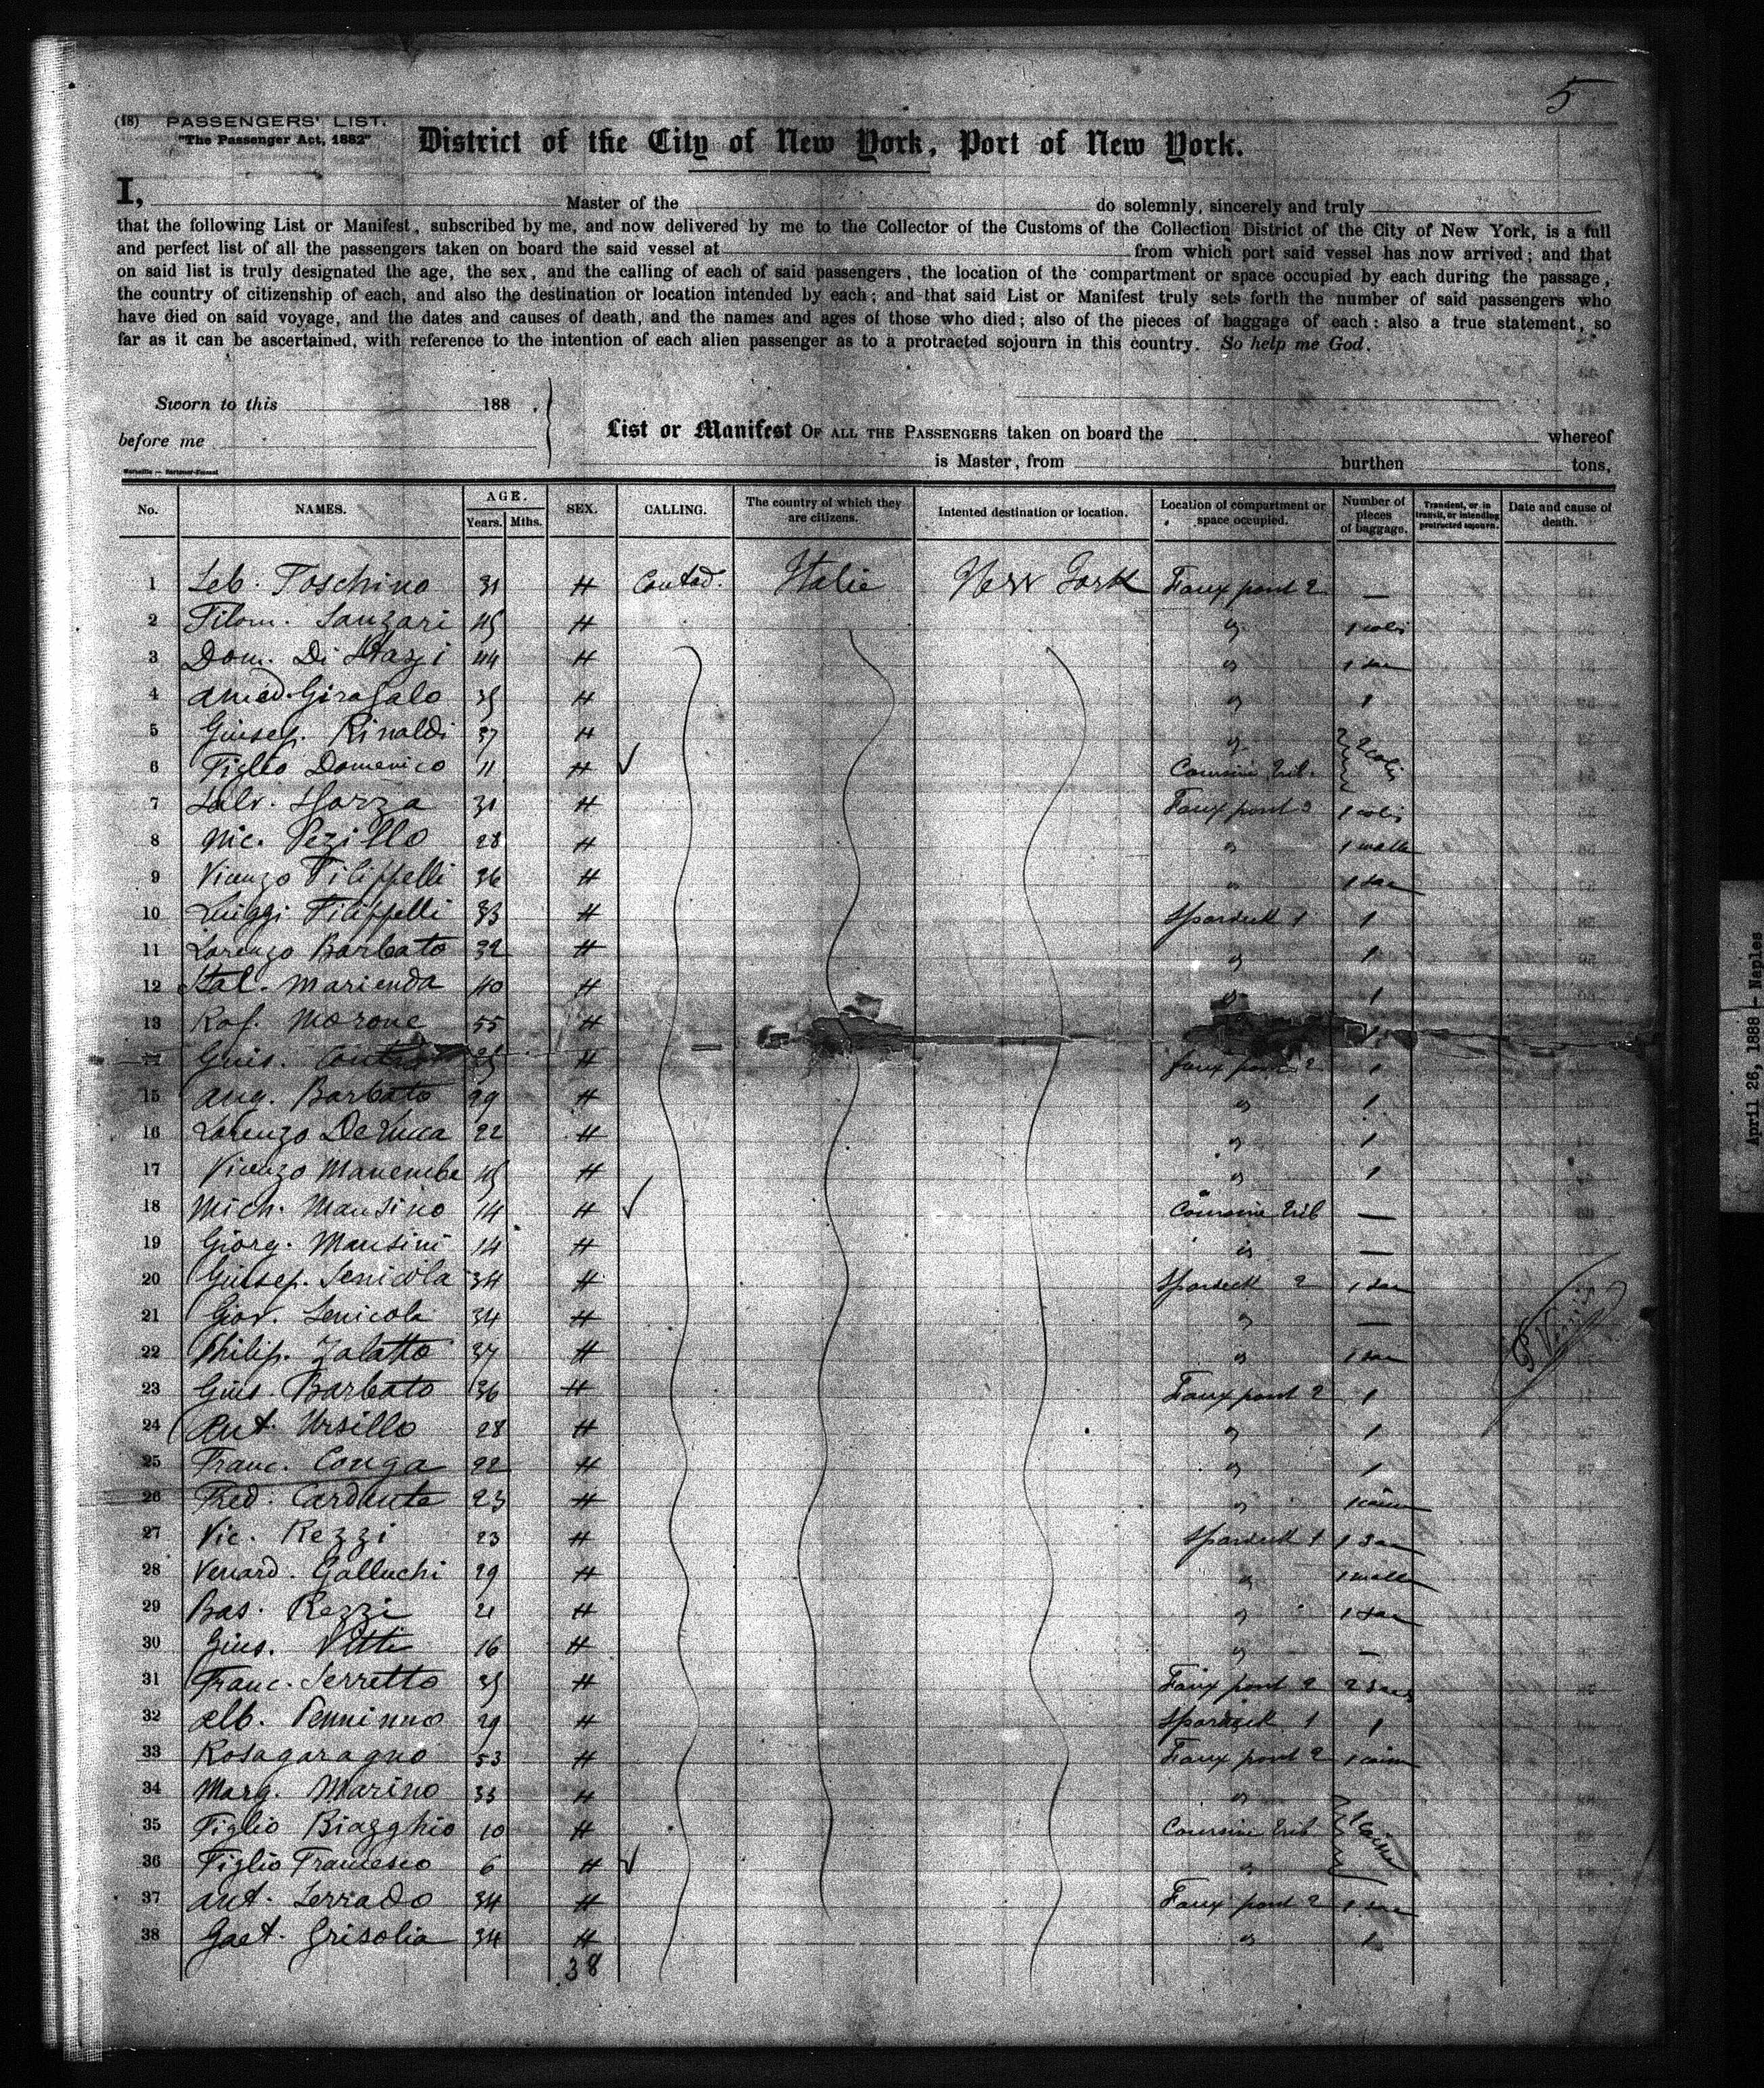 5
(18) PASSENGERS' LIST.
"The Passenger Act, 1882"
District of the City of New York, Port of New York.
I, Master of the do solemnly, sincerely and truly
that the following List or Manifest, subscribed by me, and now delivered by me to the Collector of the Customs of the Collection District of the City of New York, is a full
and perfect list of all the passengers taken on board the said vessel at from which port said vessel has now arrived; and that
on said list is truly designated the age, the sex, and the calling of each of said passengers, the location of the compartment or space occupied by each during the passage,
the country of citizenship of each, and also the destination or location intended by each; and that said List or Manifest truly sets forth the number of said passengers who
have died on said voyage, and the dates and causes of death, and the names and ages of those who died; also of the pieces of baggage of each: also a true statement, so
far as it can be ascertained, with reference to the intention of each alien passenger as to a protracted sojourn in this country. So help me God.
Sworn to this 188 .
before me
List or Manifest OF ALL THE PASSENGERS taken on board the whereof
is Master, from burthen tons,
No. NAMES. AGE. Years. Mths. SEX. CALLING. The country of which they are citizens. Intented destination or location. Location of compartment or space occupied. Number of pieces of baggage. Transient, or in transit, or intending protracted sojourn. Date and cause of death.
1 Seb. Foschino 31 H Contad. Italie New York Faux pont 2 —
2 Filom. Lanzari 45 H 1 colis
3 Dom. Di 44 H 1 sac
4 Amad. Girafalo 35 H 1
5 Guisep. Rinaldi 37 H 2 colis
6 Figlio Domenico 11 H Coursive Trib.
7 Salv. Sforza 31 H Faux pont 3 1 colis
8 Nic. Pezillo 28 H 1 malle
9 Vicenzo Filippelli 36 H 1 sac
10 Luiggi Filippelli 33 H Spardeck 1 1
11 Lorenzo Barbato 32 H 1
12 Marienda 40 H 1
13 Raf. Morone 55 H 1
Guis. H Faux pont 2 1
15 Ang. Barbato 29 H 1
16 Lorenzo De Luca 22 H 1
17 Vicenzo Manemba 45 H 1
18 Mich. Mansino 14 H Coursive Trib —
19 Giorg. Mansini 14 H —
20 Guisep. Senicola 34 H Spardeck 2 1 sac
21 Giov. Senicola 34 H —
22 Philip. Zalatto 37 H 1 sac
23 Guis. Barbato 36 H Faux pont 2 1
24 Ant. Ursillo 28 H 1
25 Franc. Conga 22 H 1
26 Fred. Cardente 23 H
27 Vic. Rezzi 23 H Spardeck 1 1 sac
28 Venard. Galluchi 29 H 1 malle
29 Bas. Rezzi 21 H 1 sac
30 Gius. Vitti 16 H —
31 Franc. Serretto 35 H Faux pont 2 2 sacs
32 Alb. Penninno 29 H Spardeck 1 1
33 Rosagaragno 53 H Faux pont 2
34 Marg. Marino 33 H
35 Figlio Biagghio 10 H Coursive Trib
36 Figlio Francesco 6 H
37 Ant. Serrado 34 H Faux pont 2 1 sac
38 Gaet. Grisolia 34 H 1
38
April 26, 1888 - Naples